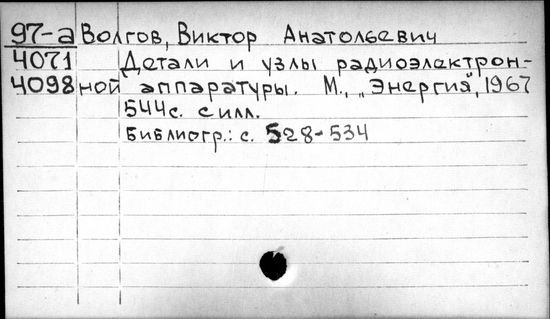 97-а Волгов, Виктор Анатольевич
4071 Детали и узлы радиоэлектрон-
4098 ной аппаратуры. М., „Энергия", 1967
544с. с илл.
Библиогр.: с. 528-534